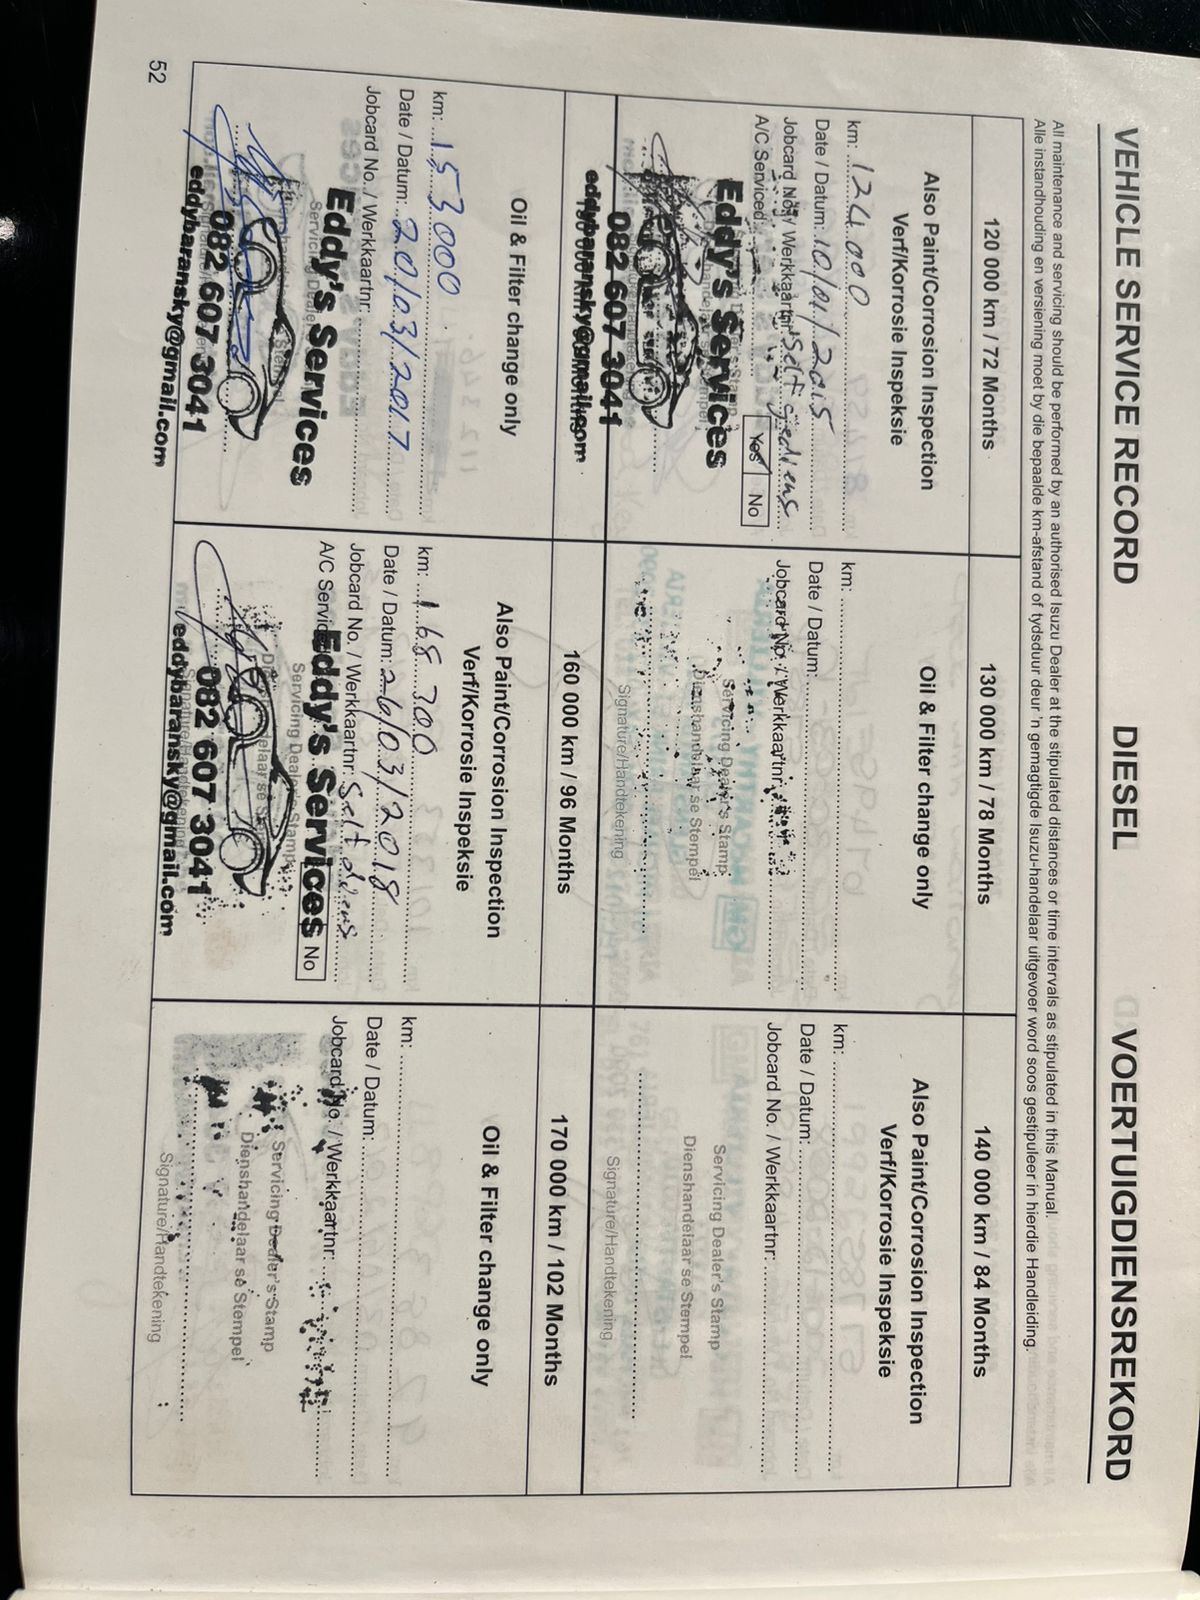 VEHICLE SERVICE RECORD DIESEL VOERTUIGDIENSREKORD
All maintenance and servicing should be performed by an authorised Isuzu Dealer at the stipulated distances or time intervals as stipulated in this Manual.
Alle instandhouding en versiening moet by die bepaalde km-afstand of tydsduur deur 'n gemagtigde Isuzu-handelaar uitgevoer word soos gestipuleer in hierdie Handleiding.
120 000 km / 72 Months
Also Paint/Corrosion Inspection
Verf/Korrosie Inspeksie
km: 124 000
Date / Datum: 10/01/2015
Jobcard No. / Werkkaartnr: Self gediens
A/C Serviced: Yes No
Eddy's Services
082 607 3041
eddybaransky@gmail.com
130 000 km / 78 Months
Oil & Filter change only
km:
Date / Datum:
Jobcard No. / Werkkaartnr:
Servicing Dealer's Stamp
Dienshandelaar se Stempel
Signature/Handtekening
140 000 km / 84 Months
Also Paint/Corrosion Inspection
Verf/Korrosie Inspeksie
km:
Date / Datum:
Jobcard No. / Werkkaartnr:
Servicing Dealer's Stamp
Dienshandelaar se Stempel
Signature/Handtekening
Oil & Filter change only
km: 153000
Date / Datum: 20/03/2017
Jobcard No. / Werkkaartnr:
Eddy's Services
082 607 3041
eddybaransky@gmail.com
160 000 km / 96 Months
Also Paint/Corrosion Inspection
Verf/Korrosie Inspeksie
km: 168 300
Date / Datum: 26/03/2018
Jobcard No. / Werkkaartnr: Self diens
A/C Serviced No
Servicing Dealer's Stamp
Eddy's Services
082 607 3041
eddybaransky@gmail.com
170 000 km / 102 Months
Oil & Filter change only
km:
Date / Datum:
Jobcard No. / Werkkaartnr:
Servicing Dealer's Stamp
Dienshandelaar se Stempel
Signature/Handtekening
52